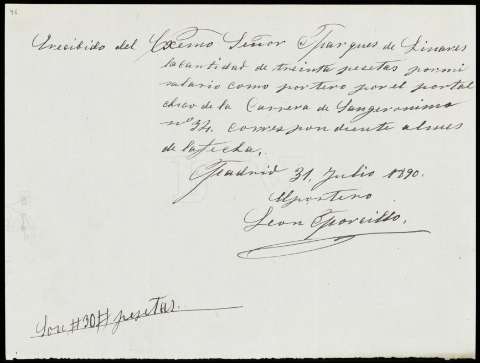 Erecibido del Exemo Señor Marques de Linares
la cantidad de treinta pesetas por mi
salario como portero por el portal
chico de la Carrera de Sangeronimo
nº 34. corres pondiente al mes
de la fecha,
Madrid 31, Julio 1890.
El portero
Leon Morcillo.
Son #30# pesetas.